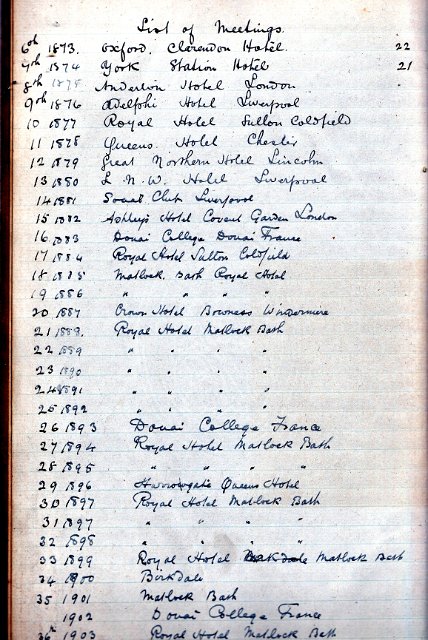 List of Meetings.
6th 1873. Oxford, Clarendon Hotel. 22
7th 1874 York Station Hotel 21
8th 1875 Anderton Hotel London
9th 1876 Adelphi Hotel Liverpool
10 1877 Royal Hotel Sutton Coldfield
11 1878 Queens Hotel Chester
12 1879 Great Northern Hotel Lincoln
13 1880 L. N. W. Hotel Liverpool
14 1881 Club Liverpool
15 1882 Ashley's Hotel Covent Garden London
16 1883 Douai College Douai France
17 1884 Royal Hotel Sutton Coldfield
18 1885 Matlock Bath Royal Hotel
19 1886 " " " "
20 1887 Crown Hotel Bowness Windermere
21 1888. Royal Hotel Matlock Bath
22 1889 " " " "
23 1890 " " " "
24 1891 " " " "
25 1892 " " " "
26 1893 Douai College France
27 1894 Royal Hotel Matlock Bath
28 1895 " " " "
29 1896 Harrowgate Queens Hotel
30 1897 Royal Hotel Matlock Bath
31 1897 " " " "
32 1898 " " " "
33 1899 Royal Hotel Matlock Bath
34 1900 Birkdale
35 1901 Matlock Bath
1902 Douai College France
36 1903 Royal Hotel Matlock Bath